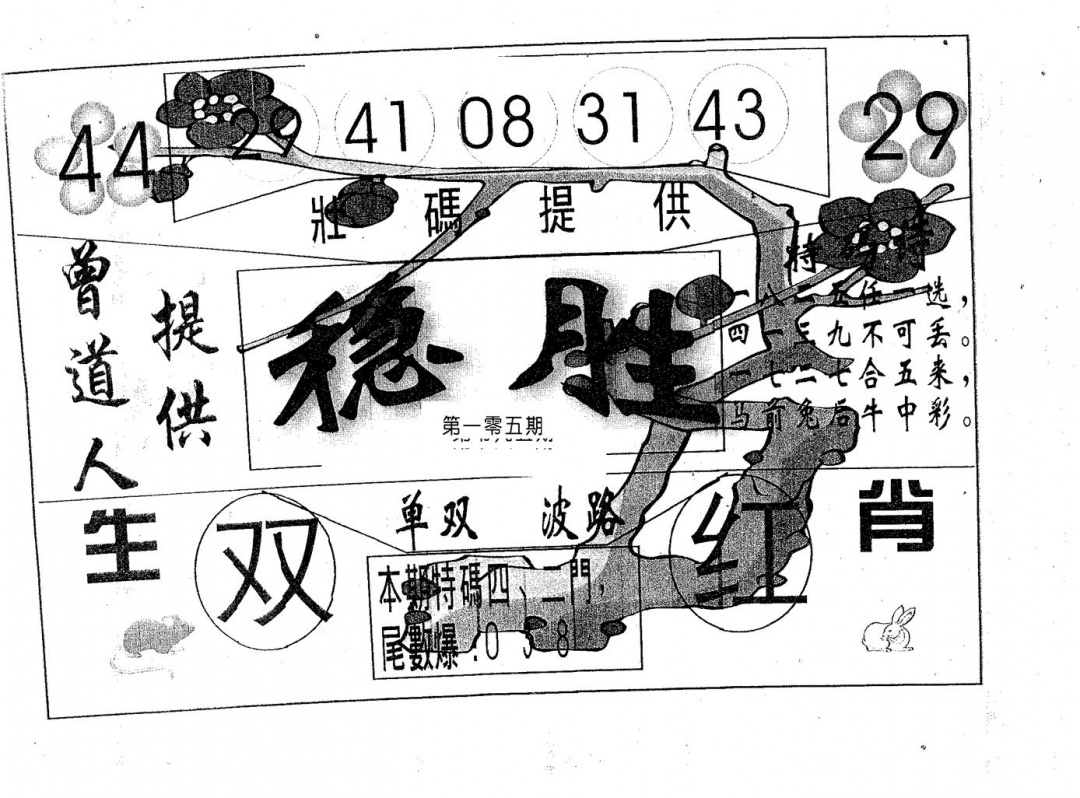 44 29 41 08 31 43 29
壯碼提供
曾道人
提供
稳胜
第一零五期
特 诗
一八二五任一选，
四一三九不可丢。
一七二七合五来，
马前兔后牛中彩。
生
双
单双 波路
红
肖
本期特碼四、二門，
尾數爆：0 3 8